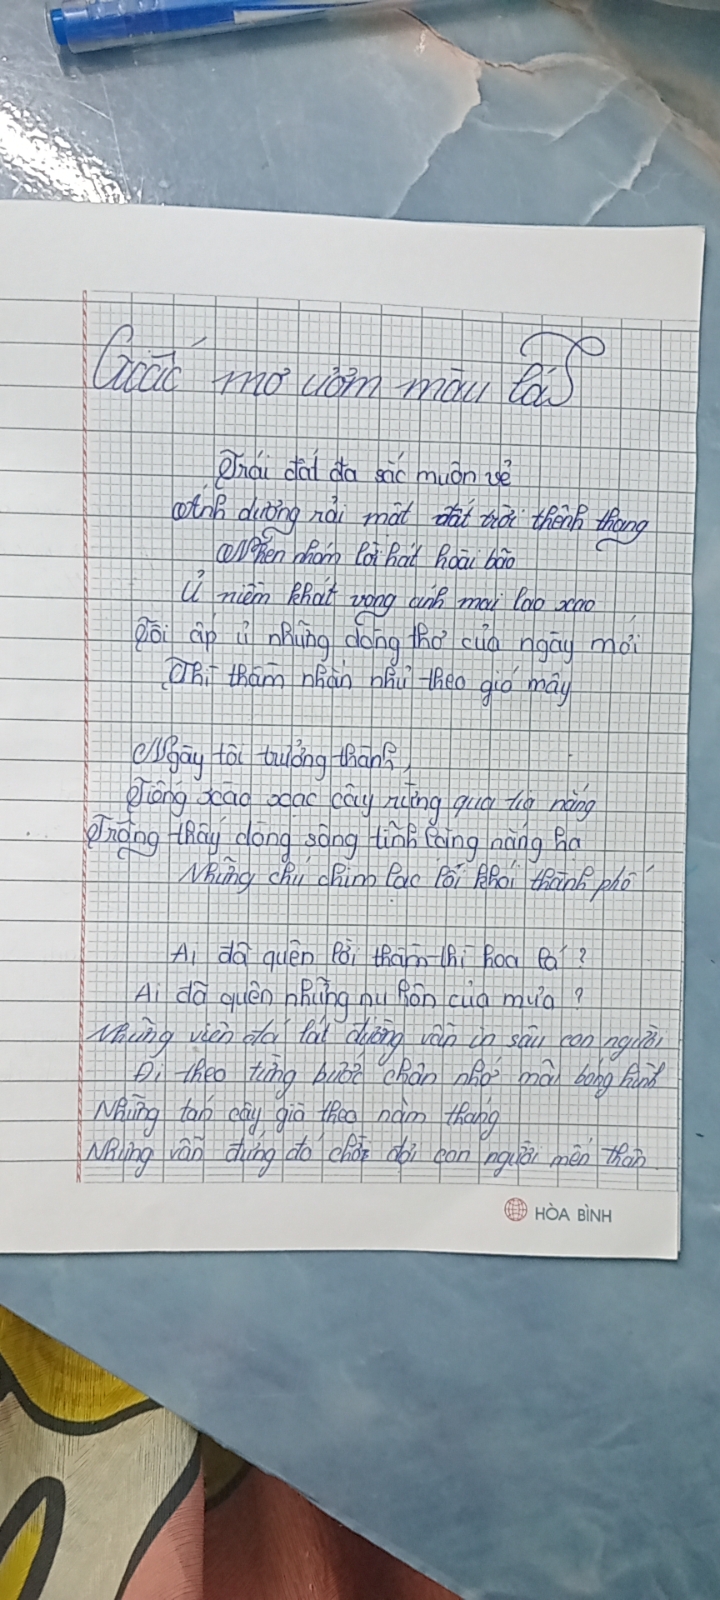 Giấc mơ ươm màu lá
Trái đất đa sắc muôn vẻ
Ánh dương rải mật đất trời thênh thang
Nhen nhóm lời hát hoài bão
Ủ niềm khát vọng ánh mai lao xao
Tôi ấp ủ những dòng thơ của ngày mới
Thì thầm nhắn nhủ theo gió mây
Ngày tôi trưởng thành,
Tiếng xào xạc cây rừng qua tia nắng
Trông thấy dòng sông tĩnh lặng nắng hạ
Những chú chim lạc lối khỏi thành phố
Ai đã quên lời thầm thì hoa lá ?
Ai đã quên những nụ hôn của mưa ?
Những viên đá lát đường vẫn in sâu con người
Đi theo từng bước chân nhớ mãi bóng hình
Những tán cây già theo năm tháng
Nhưng vẫn đứng đó chờ đợi con người mến thân
HÒA BÌNH